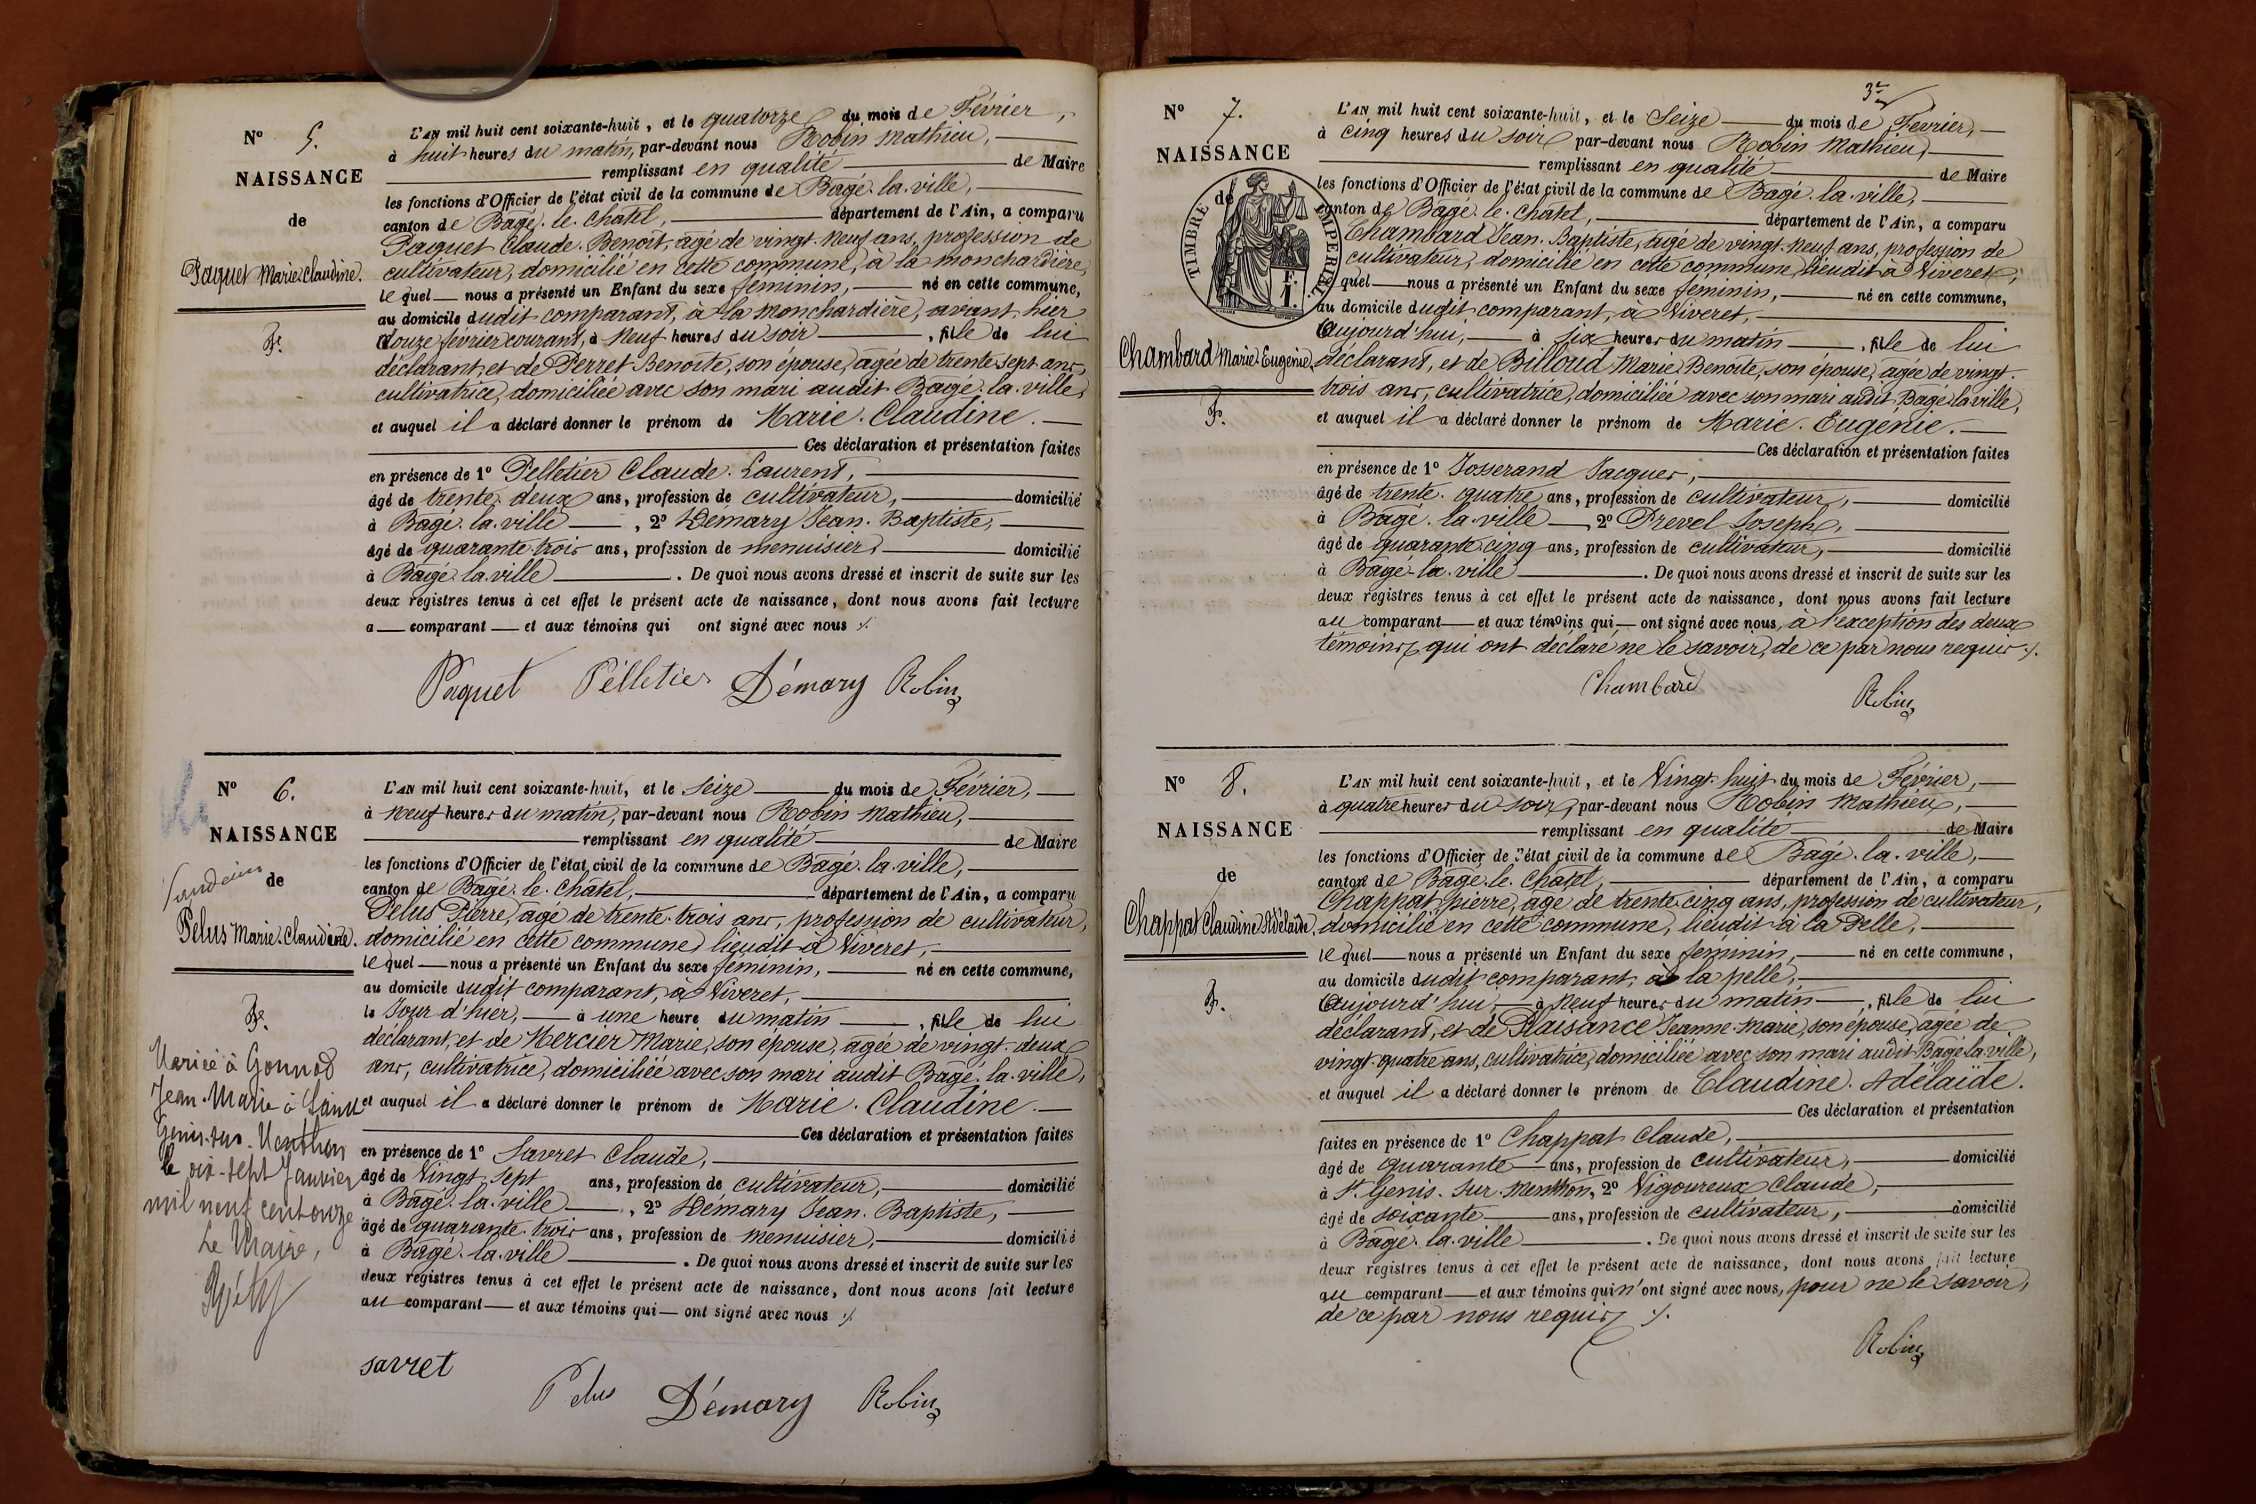 N° 5.
NAISSANCE
de
Paquet Marie-Claudine.
F.
L'AN mil huit cent soixante-huit, et le quatorze du mois de Février,
à huit heures du matin, par-devant nous Robin Mathieu,
remplissant en qualité de Maire
les fonctions d'Officier de l'état civil de la commune de Bagé-la-ville,
canton de Bagé-le-Chatel, département de l'Ain, a comparu
Paquet Claude-Benoit, agé de vingt-neuf ans, profession de
cultivateur, domicilié en cette commune, à la monchardière,
lequel nous a présenté un Enfant du sexe féminin, né en cette commune,
au domicile dudit comparant, à la monchardière, avant hier
douze février courant, à neuf heures du soir, fille de lui
déclarant, et de Perret Benoîte, son épouse, agée de trente sept ans,
cultivatrice, domiciliée avec son mari audit Bagé-la-ville,
et auquel il a déclaré donner le prénom de Marie-Claudine.
Ces déclaration et présentation faites
en présence de 1° Pelletier Claude-Laurent,
âgé de trente-deux ans, profession de cultivateur, domicilié
à Bagé-la-ville, 2° Démary Jean-Baptiste,
âgé de quarante-trois ans, profession de menuisier, domicilié
à Bagé-la-ville. De quoi nous avons dressé et inscrit de suite sur les
deux registres tenus à cet effet le présent acte de naissance, dont nous avons fait lecture
a comparant et aux témoins qui ont signé avec nous ./.
Paquet Pélletier Démary Robin
N° 6.
NAISSANCE
de
Pelus Marie-Claudine.
F.
Mariée à Gonnod
Jean-Marie à Saint
Genis-sur-Menthon
le dix-sept Janvier
mil neuf cent onze
Le Maire,
L'AN mil huit cent soixante-huit, et le Seize du mois de Février,
à neuf heures du matin, par-devant nous Robin Mathieu,
remplissant en qualité de Maire
les fonctions d'Officier de l'état civil de la commune de Bagé-la-ville,
canton de Bagé-le-Châtel, département de l'Ain, a comparu
Pelus Pierre, agé de trente-trois ans, profession de cultivateur,
domicilié en cette commune, lieudit à Viveret,
lequel nous a présenté un Enfant du sexe féminin, né en cette commune,
au domicile dudit comparant, à Viveret,
le Jour d'hier, à une heure du matin, fille de lui
déclarant, et de Mercier Marie, son épouse, agée de vingt-deux
ans, cultivatrice, domiciliée avec son mari audit Bagé-la-ville,
et auquel il a déclaré donner le prénom de Marie-Claudine.
Ces déclaration et présentation faites
en présence de 1° Savret Claude,
âgé de Vingt-sept ans, profession de cultivateur, domicilié
à Bagé-la-ville, 2° Démary Jean-Baptiste,
âgé de quarante-trois ans, profession de menuisier, domicilié
à Bagé-la-ville. De quoi nous avons dressé et inscrit de suite sur les
deux registres tenus à cet effet le présent acte de naissance, dont nous avons fait lecture
au comparant et aux témoins qui ont signé avec nous ./.
savret
Pelus Démary Robin
3e
N° 7.
NAISSANCE
de
TIMBRE IMPERIAL
Chambard Marie-Eugénie.
F.
L'AN mil huit cent soixante-huit, et le Seize du mois de Février,
à cinq heures du soir, par-devant nous Robin Mathieu,
remplissant en qualité de Maire
les fonctions d'Officier de l'état civil de la commune de Bagé-la-ville,
canton de Bagé-le-Châtel, département de l'Ain, a comparu
Chambard Jean-Baptiste, agé de vingt-neuf ans, profession de
cultivateur, domicilié en cette commune, lieudit à Viveret,
quel nous a présenté un Enfant du sexe féminin, né en cette commune,
au domicile dudit comparant, à Viveret,
Aujourd'hui, à six heures du matin, fille de lui
déclarant, et de Billoud Marie-Benoîte, son épouse, agée de vingt-
trois ans, cultivatrice, domiciliée avec son mari audit Bagé-la-ville,
et auquel il a déclaré donner le prénom de Marie-Eugénie.
Ces déclaration et présentation faites
en présence de 1° Josserand Jacques,
âgé de trente-quatre ans, profession de cultivateur, domicilié
à Bagé-la-ville, 2° Prevel Joseph,
âgé de quarante-cinq ans, profession de cultivateur, domicilié
à Bagé-la-ville. De quoi nous avons dressé et inscrit de suite sur les
deux registres tenus à cet effet le présent acte de naissance, dont nous avons fait lecture
au comparant et aux témoins qui ont signé avec nous, à l'exception des deux
témoins, qui ont déclaré ne le savoir, de ce par nous requis ./.
Chambard Robin
N° 8.
NAISSANCE
de
Chappat Claudine Adélaïde.
F.
L'AN mil huit cent soixante-huit, et le Vingt-huit du mois de Février,
à quatre heures du soir, par-devant nous Robin Mathieu,
remplissant en qualité de Maire
les fonctions d'Officier de l'état civil de la commune de Bagé-la-ville,
canton de Bagé-le-Chatel, département de l'Ain, a comparu
Chappat pierre, agé de trente-cinq ans, profession de cultivateur,
domicilié en cette commune, lieudit à la Pelle,
lequel nous a présenté un Enfant du sexe féminin, né en cette commune,
au domicile dudit comparant, à la pelle,
Aujourd'hui, à neuf heures du matin, fille de lui
déclarant, et de Plaisance Jeanne-Marie, son épouse, agée de
vingt-quatre ans, cultivatrice, domiciliée avec son mari audit Bagé-la-ville,
et auquel il a déclaré donner le prénom de Claudine-Adélaïde.
Ces déclaration et présentation
faites en présence de 1° Chappat Claude,
âgé de quarante ans, profession de cultivateur, domicilié
à St Genis-sur-Menthon, 2° Vigoureux Claude,
âgé de soixante ans, profession de cultivateur, domicilié
à Bagé-la-ville. De quoi nous avons dressé et inscrit de suite sur les
deux registres tenus à cet effet le présent acte de naissance, dont nous avons fait lecture
au comparant et aux témoins qui n'ont signé avec nous, pour ne le savoir,
de ce par nous requis ./.
Robin